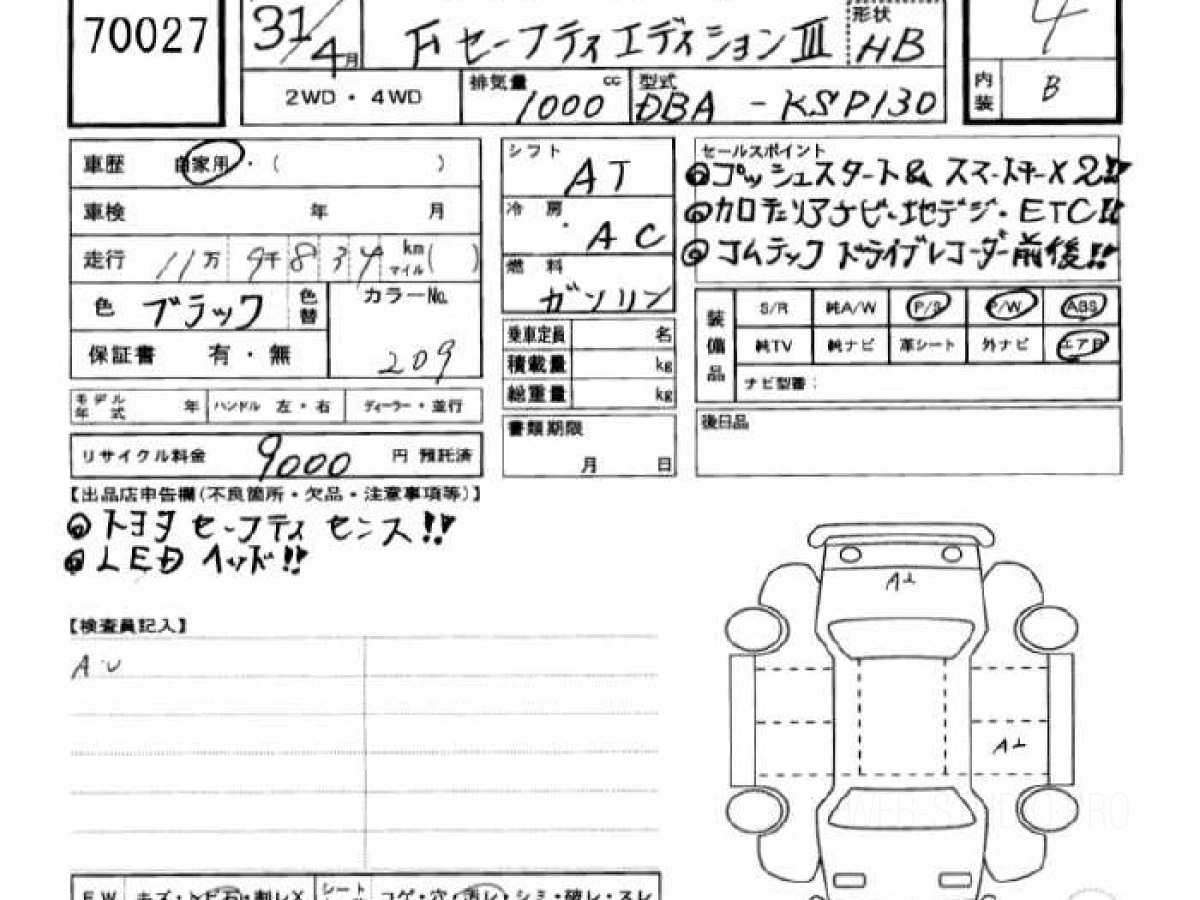 70027
31/4月
Fセーフティエディション III
形状 HB
4
2WD・4WD
排気量 1000 cc
型式 DBA-KSP130
内装 B
車歴 自家用・( )
車検 年 月
走行 11万9千834 km マイル( )
色 ブラック 色替
カラーNo. 209
保証書 有・無
モデル年式 年 ハンドル 左・右 ディーラー・並行
リサイクル料金 9000 円 預託済
シフト AT
冷房 AC
燃料 ガソリン
乗車定員 名
積載量 kg
総重量 kg
書類期限
月 日
セールスポイント
◎プッシュスタート& スマートキー×2!!
◎カロッツェリアナビ・地デジ・ETC!!
◎コムテック ドライブレコーダー前後!!
装備品
S/R 純A/W P/S P/W ABS
純TV 純ナビ 革シート 外ナビ エアB
ナビ型番:
後日品
【出品店申告欄(不良箇所・欠品・注意事項等)】
◎トヨタ セーフティ センス!!
◎LED ヘッド!!
【検査員記入】
A・U
A1
A1
F.W キズ・トビ石・割レX
シート コゲ・穴・汚レ・シミ・破レ・スレ